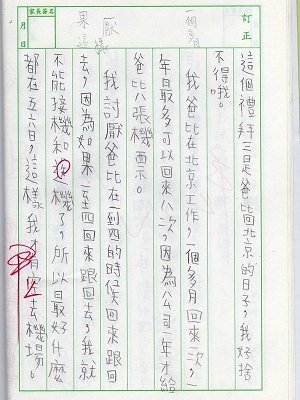 訂正
一個多
厭
果
家長簽名
月 日
這個禮拜三是爸比回北京的日子,我好捨
不得哦。
我爸比在北京工作,一個多月回來一次,一
年最多可以回來八次,因為公司一年才給
爸比八張機票。
我討厭爸比在一到四的時候回來跟回
去,因為如果一至四回來跟回去,我就
不能接機和送機了,所以最好什麼
都在五六日,這樣我才有空去機場。